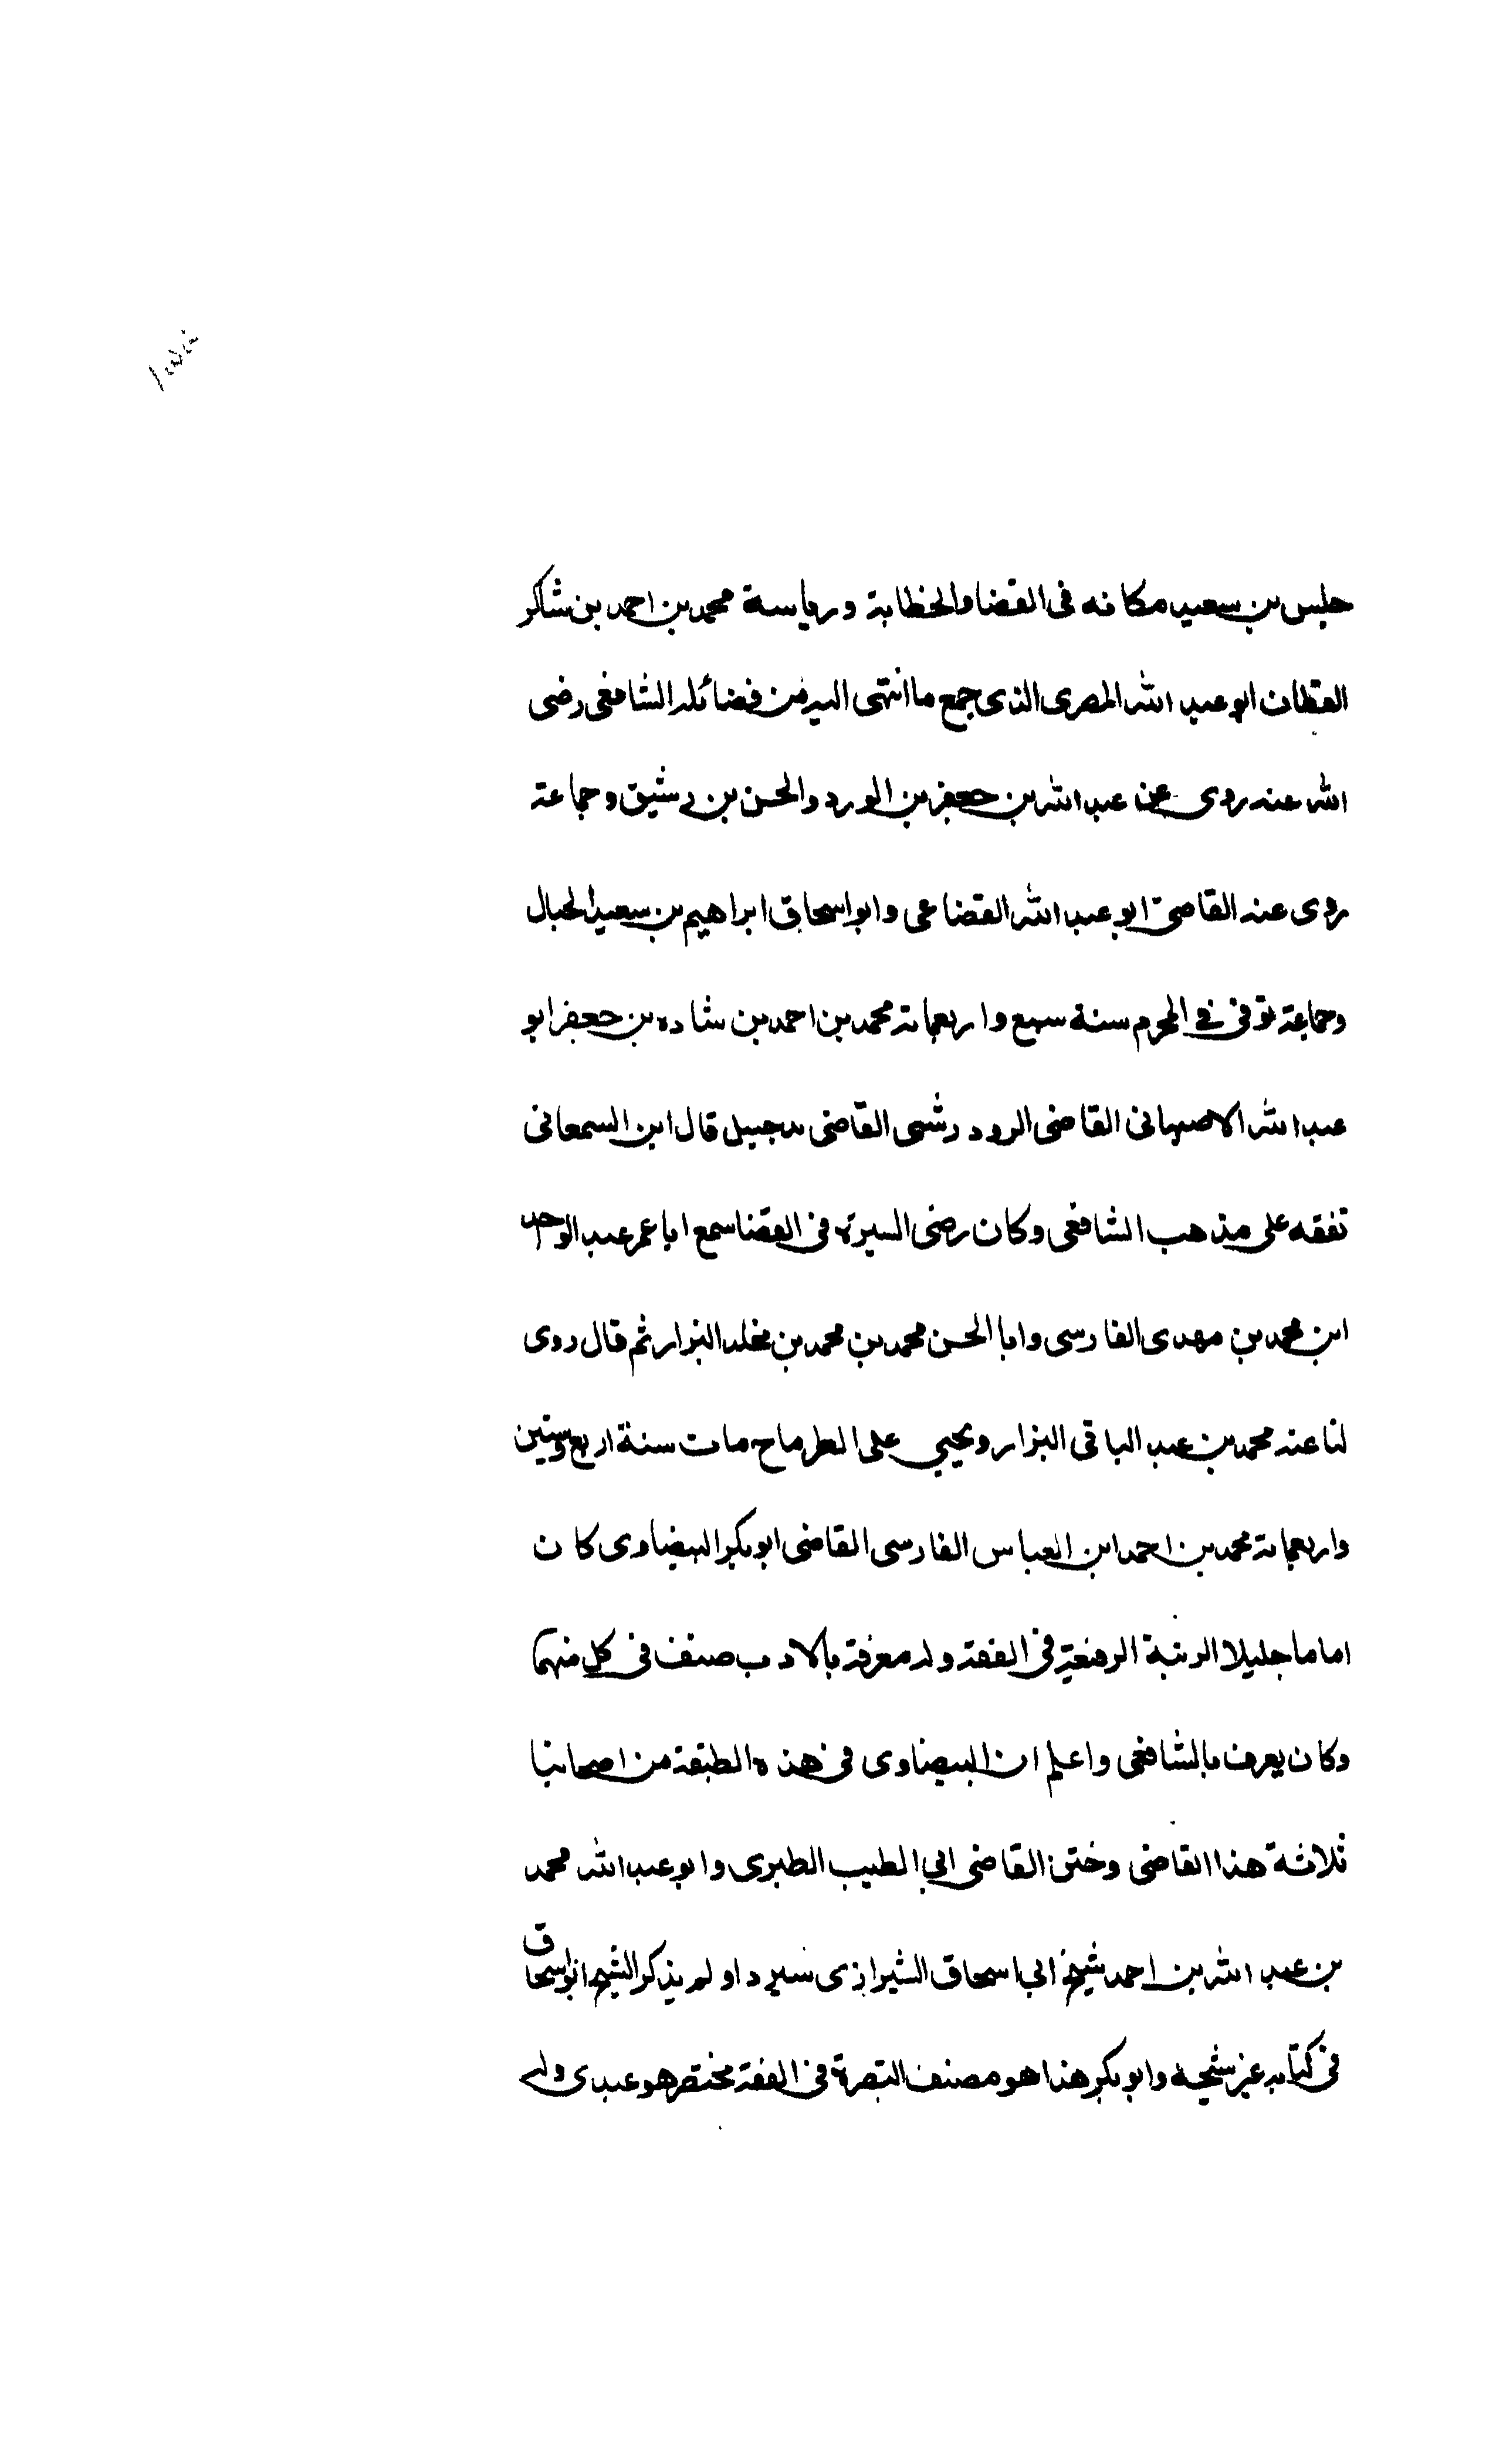 جلس بن سعيد مكانه فى القضا والخطابة ورياسة محمد بن احمد بن شاكر
القطان ابو عبد الله المصرى الذى جمع ما انتهى اليه من فضائله الشافعى رضى
الله عنه روى عن عبد الله بن جعفر بن الورد والحسن بن رشيق وجماعة
روى عنه القاضى ابو عبد الله القضاعى وابو اسحاق ابراهيم بن سعيد الحبال
وجماعة توفى فى المحرم سنة سبع واربعماىة محمد بن احمد بن شاده بن جعفر ابو
عبد الله الاصبهانى القاضى الرود دشتى القاضى بدجيل قال ابن السمعانى
تفقه على مذهب الشافعى وكان رضى السيرة فى القضا سمع ابا عمر عبد الواحد
ابن محمد بن مهدى الفارسى وابا الحسن محمد بن محمد بن مخلد البزار ثم قال روى
لنا عنه محمد بن عبد الباقى البزار ويحيى على الطرماح مات سنة اربع وستين
واربعماىة محمد بن احمد ابن العباس الفارسى القاضى ابو بكر البيضاوى كان
اماما جليلا الرتبة الرفيعة فى الفقه وله معرفة بالادب صنف فى كل منهما
وكان يعرف بالشافعى واعلم ان البيضاوى فى هذه الطبقة من اصحابنا
ثلاثة هذا القاضى وختن القاضى ابى الطيب الطبرى وابو عبد الله محمد
بن عبد الله بن احمد شيخ ابى اسحاق الشيرازى سيرد اولم يذكر الشيخ ابو اسحاق
فى كتابه غير شيخه وابو بكر هذا هو مصنف التبصرة فى الفقه مختصر هو عندى وله